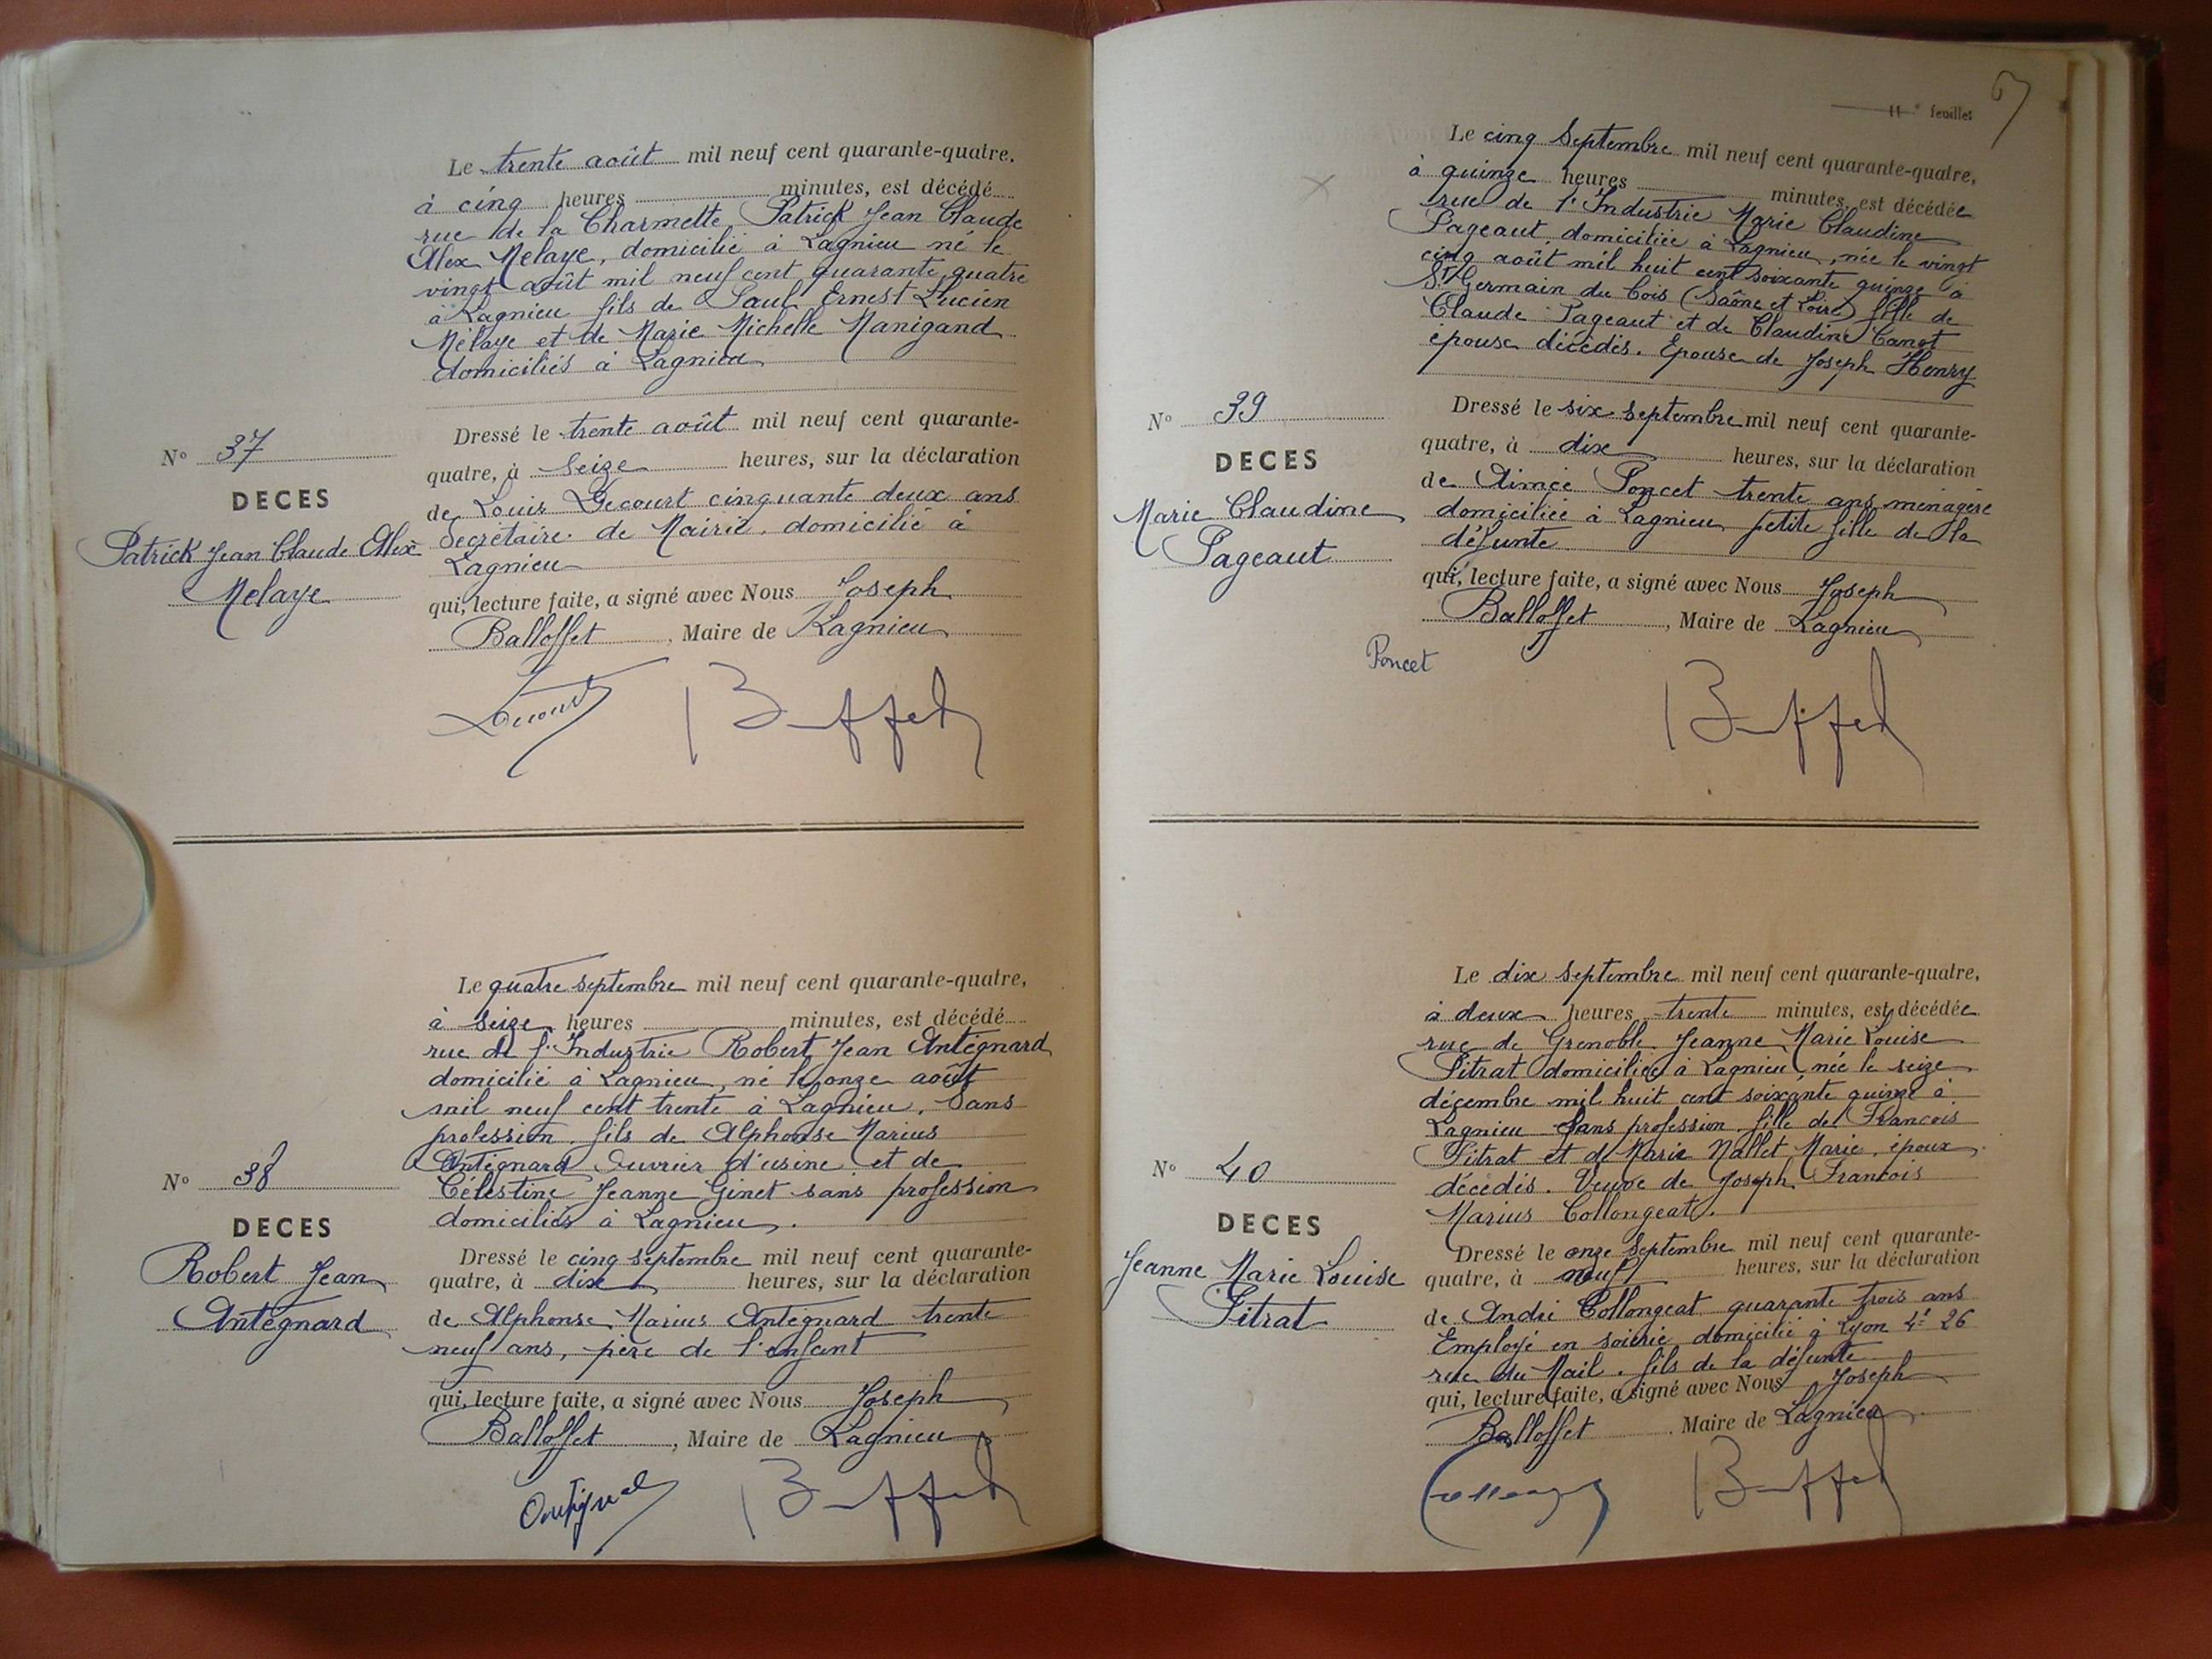 Le trente août mil neuf cent quarante-quatre,
à cinq heures minutes, est décédé
rue de la Charmette Patrick Jean Claude
Alex Melaye, domicilié à Lagnieu né le
vingt août mil neuf cent quarante quatre
à Lagnieu fils de Paul Ernest Lucien
Mélaye et de Marie Michelle Manigand
domiciliés à Lagnieu
Nº 37
DECES
Patrick Jean Claude Alex
Melaye
Dressé le trente août mil neuf cent quarante-
quatre, à seize heures, sur la déclaration
de Louis Decourt cinquante deux ans
Secrétaire de Mairie. domicilié à
Lagnieu
qui, lecture faite, a signé avec Nous Joseph
Balloffet, Maire de Lagnieu
Le quatre septembre mil neuf cent quarante-quatre,
à seize heures minutes, est décédé
rue de l'Industrie Robert Jean Antégnard
domicilié à Lagnieu, né le onze août
mil neuf cent trente à Lagnieu. Sans
profession. fils de Alphonse Marius
Antégnard Ouvrier d'usine et de
Célestine Jeanne Ginet sans profession
domiciliés à Lagnieu.
Nº 38
DECES
Robert Jean
Antégnard
Dressé le cinq septembre mil neuf cent quarante-
quatre, à dix heures, sur la déclaration
de Alphonse Marius Antégnard trente
neuf ans, père de l'enfant
qui, lecture faite, a signé avec Nous Joseph
Balloffet, Maire de Lagnieu
67
11e feuillet
Le cinq Septembre mil neuf cent quarante-quatre,
à quinze heures minutes, est décédée
rue de l'Industrie Marie Claudine
Pageaut, domiciliée à Lagnieu, née le vingt
cinq août mil huit cent soixante quinze à
St Germain du bois (Saône et Loire) fille de
Claude Pageaut et de Claudine Canot
épouse décédés. Epouse de Joseph Henry
Nº 39
DECES
Marie Claudine
Pageaut
Dressé le six septembre mil neuf cent quarante-
quatre, à dix heures, sur la déclaration
de Aimée Poncet trente ans ménagère
domiciliée à Lagnieu petite fille de la
défunte
qui, lecture faite, a signé avec Nous Joseph
Balloffet, Maire de Lagnieu
Poncet
Le dix septembre mil neuf cent quarante-quatre,
à deux heures trente minutes, est décédée
rue de Grenoble. Jeanne Marie Louise
Pitrat domiciliée à Lagnieu, née le seize
décembre mil huit cent soixante quinze à
Lagnieu sans profession. fille de Francois
Pitrat et de Marie Mallet Marie. époux
décédés. Veuve de Joseph Francois
Marius Collongeat.
Nº 40
DECES
Jeanne Marie Louise
Pitrat
Dressé le onze Septembre mil neuf cent quarante-
quatre, à neuf heures, sur la déclaration
de André Collongeat quarante trois ans
Employé en soierie domicilié à Lyon 4e 26
rue du Mail. fils de la défunte
qui, lecture faite, a signé avec Nous Joseph
Balloffet. Maire de Lagnieu